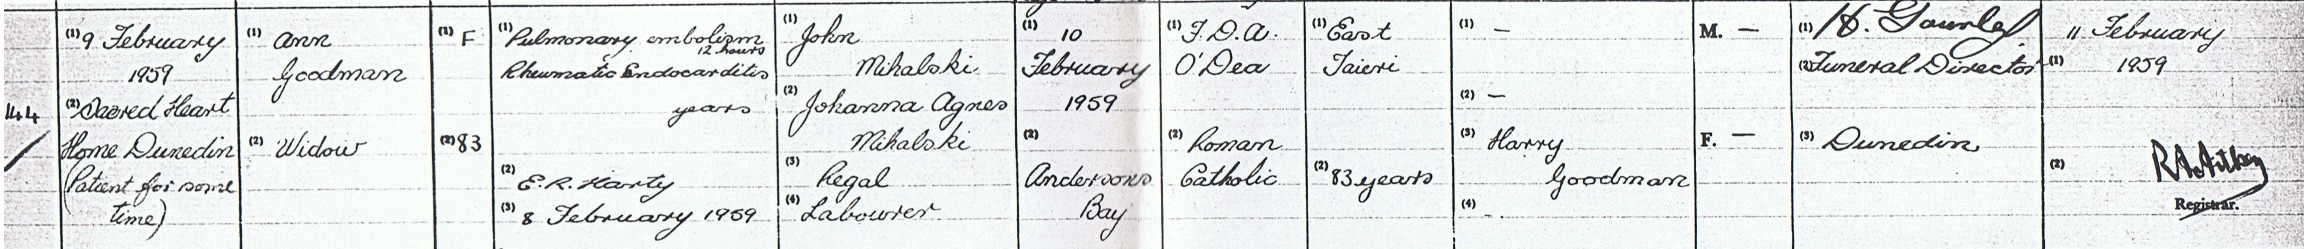 144
(1) 9 February
1959
(2) Sacred Heart
Home Dunedin
(Patient for some
time)
(1) Ann
Goodman
(2) Widow
(1) F
(2) 83
(1) Pulmonary embolism
12 hours
Rheumatic Endocarditis
years
(2) E.R. Harty
(3) 8 February 1959
(1) John
Mihalski
(2) Johanna Agnes
Mihalski
(3) Regal
(4) Labourer
(1) 10
February
1959
(2)
Andersons
Bay
(1) F.D.A.
O'Dea
(2) Roman
Catholic
(1) East
Taieri
(2) 83 years
(1) —
(2) —
(3) Harry
Goodman
(4)
M. —
F. —
(1) H.
(2) Funeral Director
(3) Dunedin
11 February
(1) 1959
(2)
Registrar.